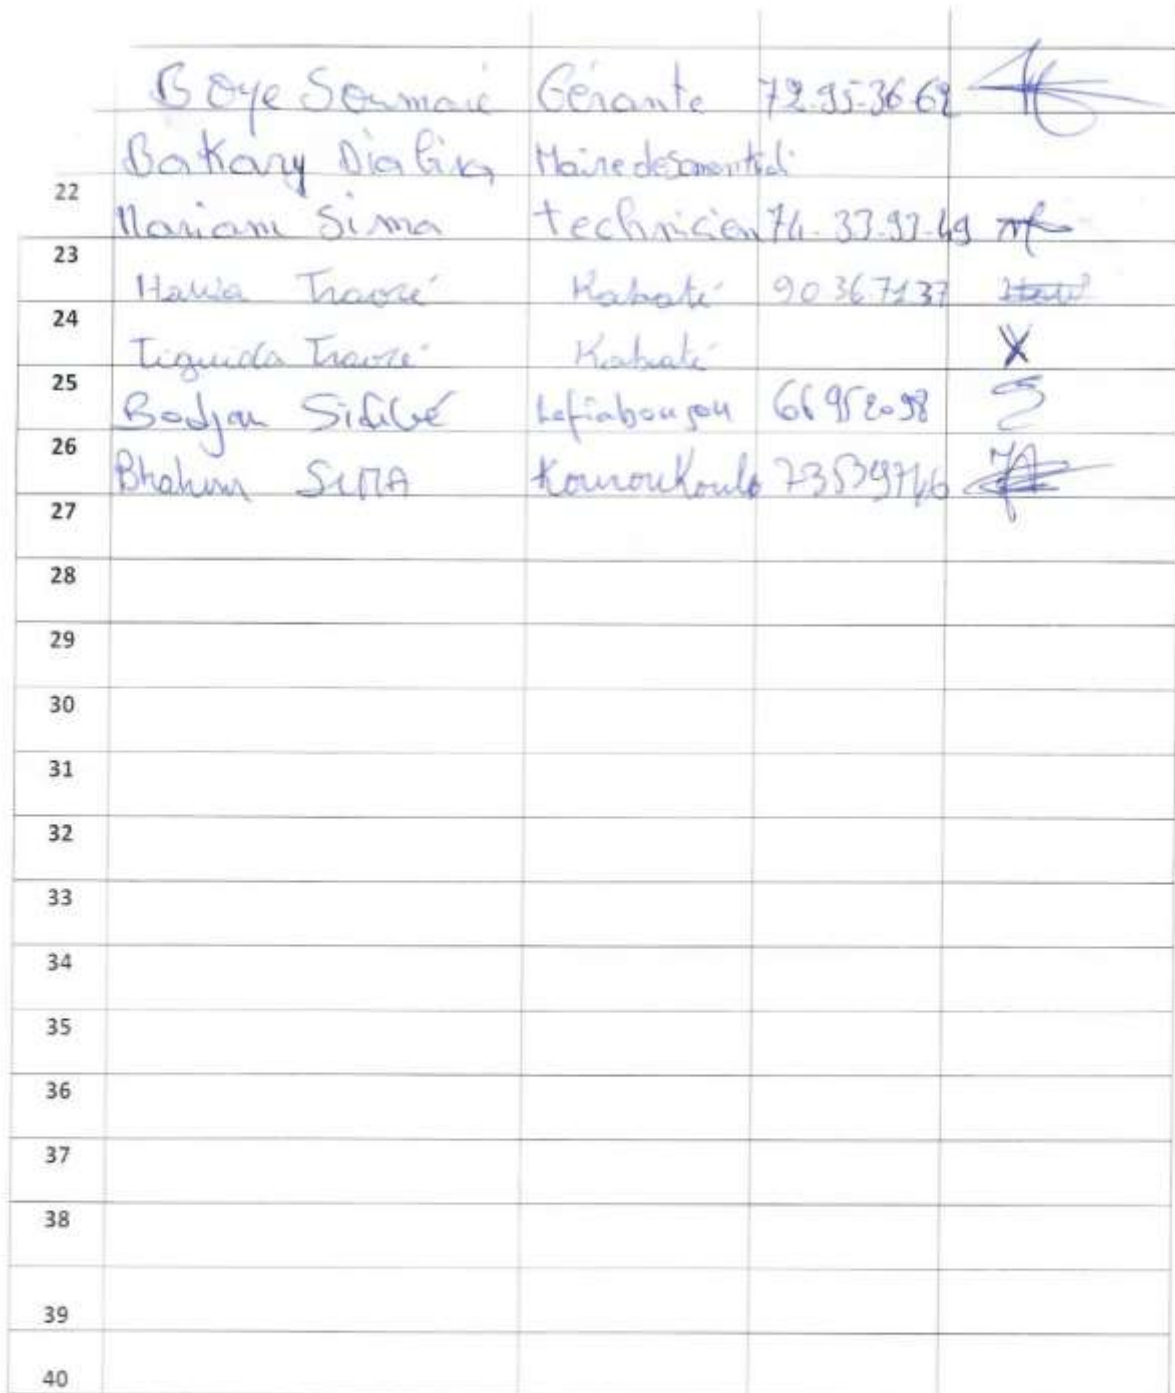 Boye Soumaré Gérante 72-95-36-62
Bakary Mairede
22
Mariam Sima technicien 74-33-93-49
23
Hawa Traoré Kabaté 90367137
24
Tiguida Traoré Kabaté X
25
Bodjan Sidibé Lafiabougou 66952098
26
Brahim SIMA Kouroukoulo 73539746
27
28
29
30
31
32
33
34
35
36
37
38
39
40